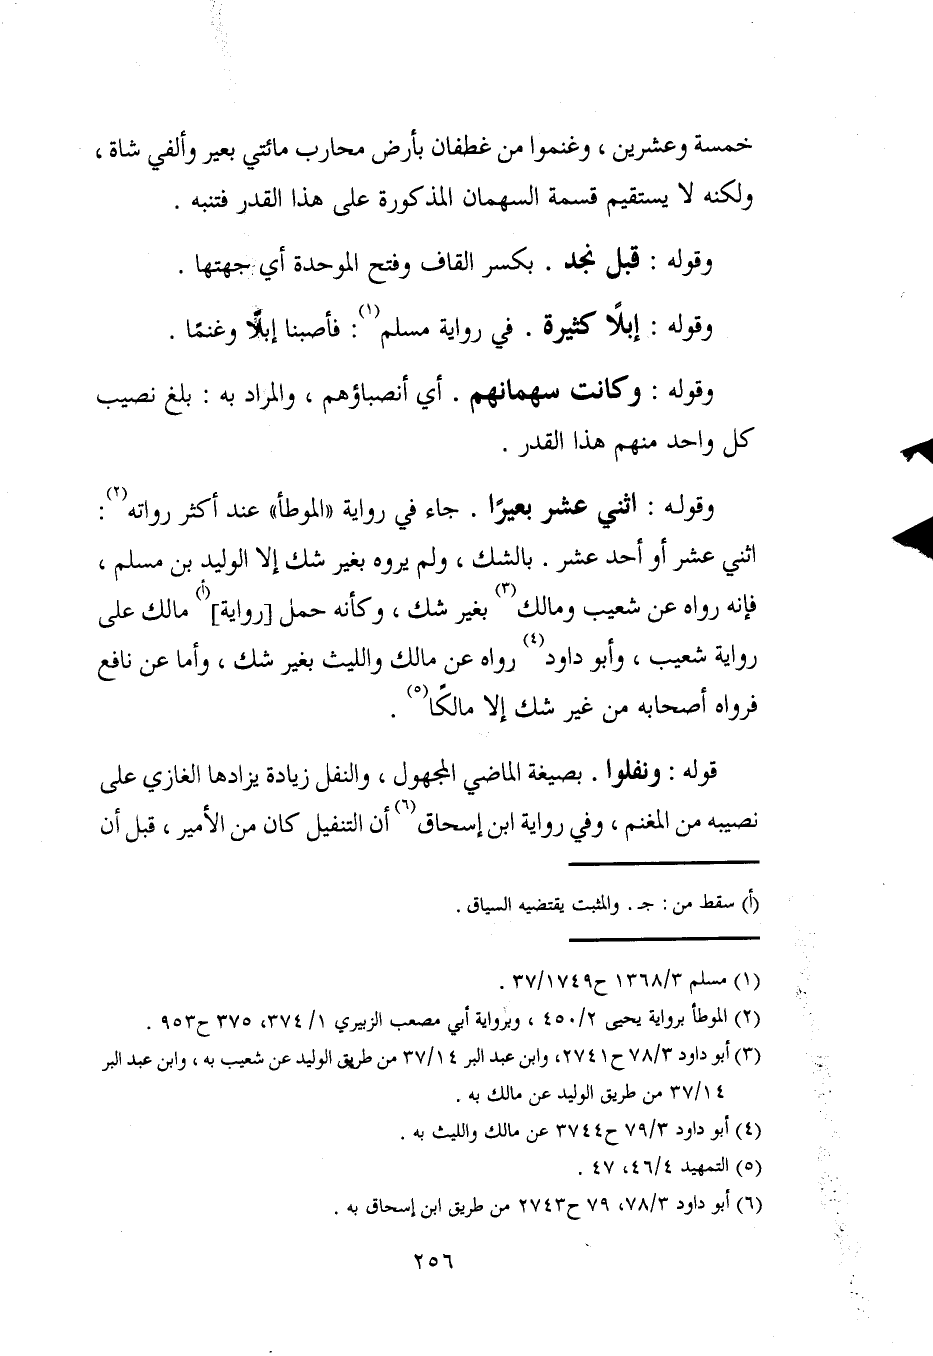 خمسة وعشرين ، وغنموا من غطفان بأرض محارب مائتي بعير وألفي شاة ،
ولكنه لا يستقيم قسمة السهمان المذكورة على هذا القدر فتنبه .
وقوله : قبل نجد . بكسر القاف وفتح الموحدة أي جهتها .
وقوله : إبلًا كثيرة . في رواية مسلم(١): فأصبنا إبلًا وغنمًا .
وقوله : وكانت سهمانهم . أي أنصباؤهم ، والمراد به : بلغ نصيب
كل واحد منهم هذا القدر .
وقوله : اثني عشر بعيرًا . جاء في رواية «الموطأ» عند أكثر رواته(٢):
اثني عشر أو أحد عشر . بالشك ، ولم يروه بغير شك إلا الوليد بن مسلم ،
فإنه رواه عن شعيب ومالك(٣) بغير شك ، وكأنه حمل [رواية](أ) مالك على
رواية شعيب ، وأبو داود(٤) رواه عن مالك والليث بغير شك ، وأما عن نافع
فرواه أصحابه من غير شك إلا مالكًا(٥) .
قوله : ونفلوا . بصيغة الماضي المجهول ، والنفل زيادة يزادها الغازي على
نصيبه من المغنم ، وفي رواية ابن إسحاق(٦) أن التنفيل كان من الأمير ، قبل أن
(أ) سقط من : جـ . والمثبت يقتضيه السياق .
(١) مسلم ١٣٦٨/٣ ح٣٧/١٧٤٩ .
(٢) الموطأ برواية يحيى ٤٥٠/٢ ، وبرواية أبي مصعب الزبيري ١/ ٣٧٤، ٣٧٥ ح٩٥٣ .
(٣) أبو داود ٧٨/٣ ح٢٧٤١، وابن عبد البر ٣٧/١٤ من طريق الوليد عن شعيب به ، وابن عبد البر
٣٧/١٤ من طريق الوليد عن مالك به .
(٤) أبو داود ٧٩/٣ ح٣٧٤٤ عن مالك والليث به .
(٥) التمهيد ٤٦/٤، ٤٧ .
(٦) أبو داود ٧٨/٣، ٧٩ ح٢٧٤٣ من طريق ابن إسحاق به .
٢٥٦